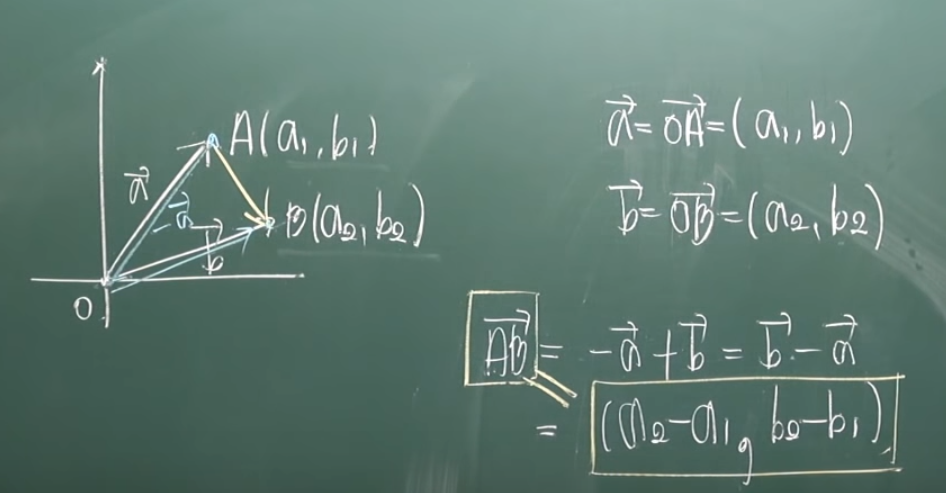 A(a₁, b₁)
a⃗
-a⃗
B(a₂, b₂)
b⃗
O
a⃗ = OA⃗ = (a₁, b₁)
b⃗ = OB⃗ = (a₂, b₂)
AB⃗ = -a⃗ + b⃗ = b⃗ - a⃗
= (a₂-a₁, b₂-b₁)